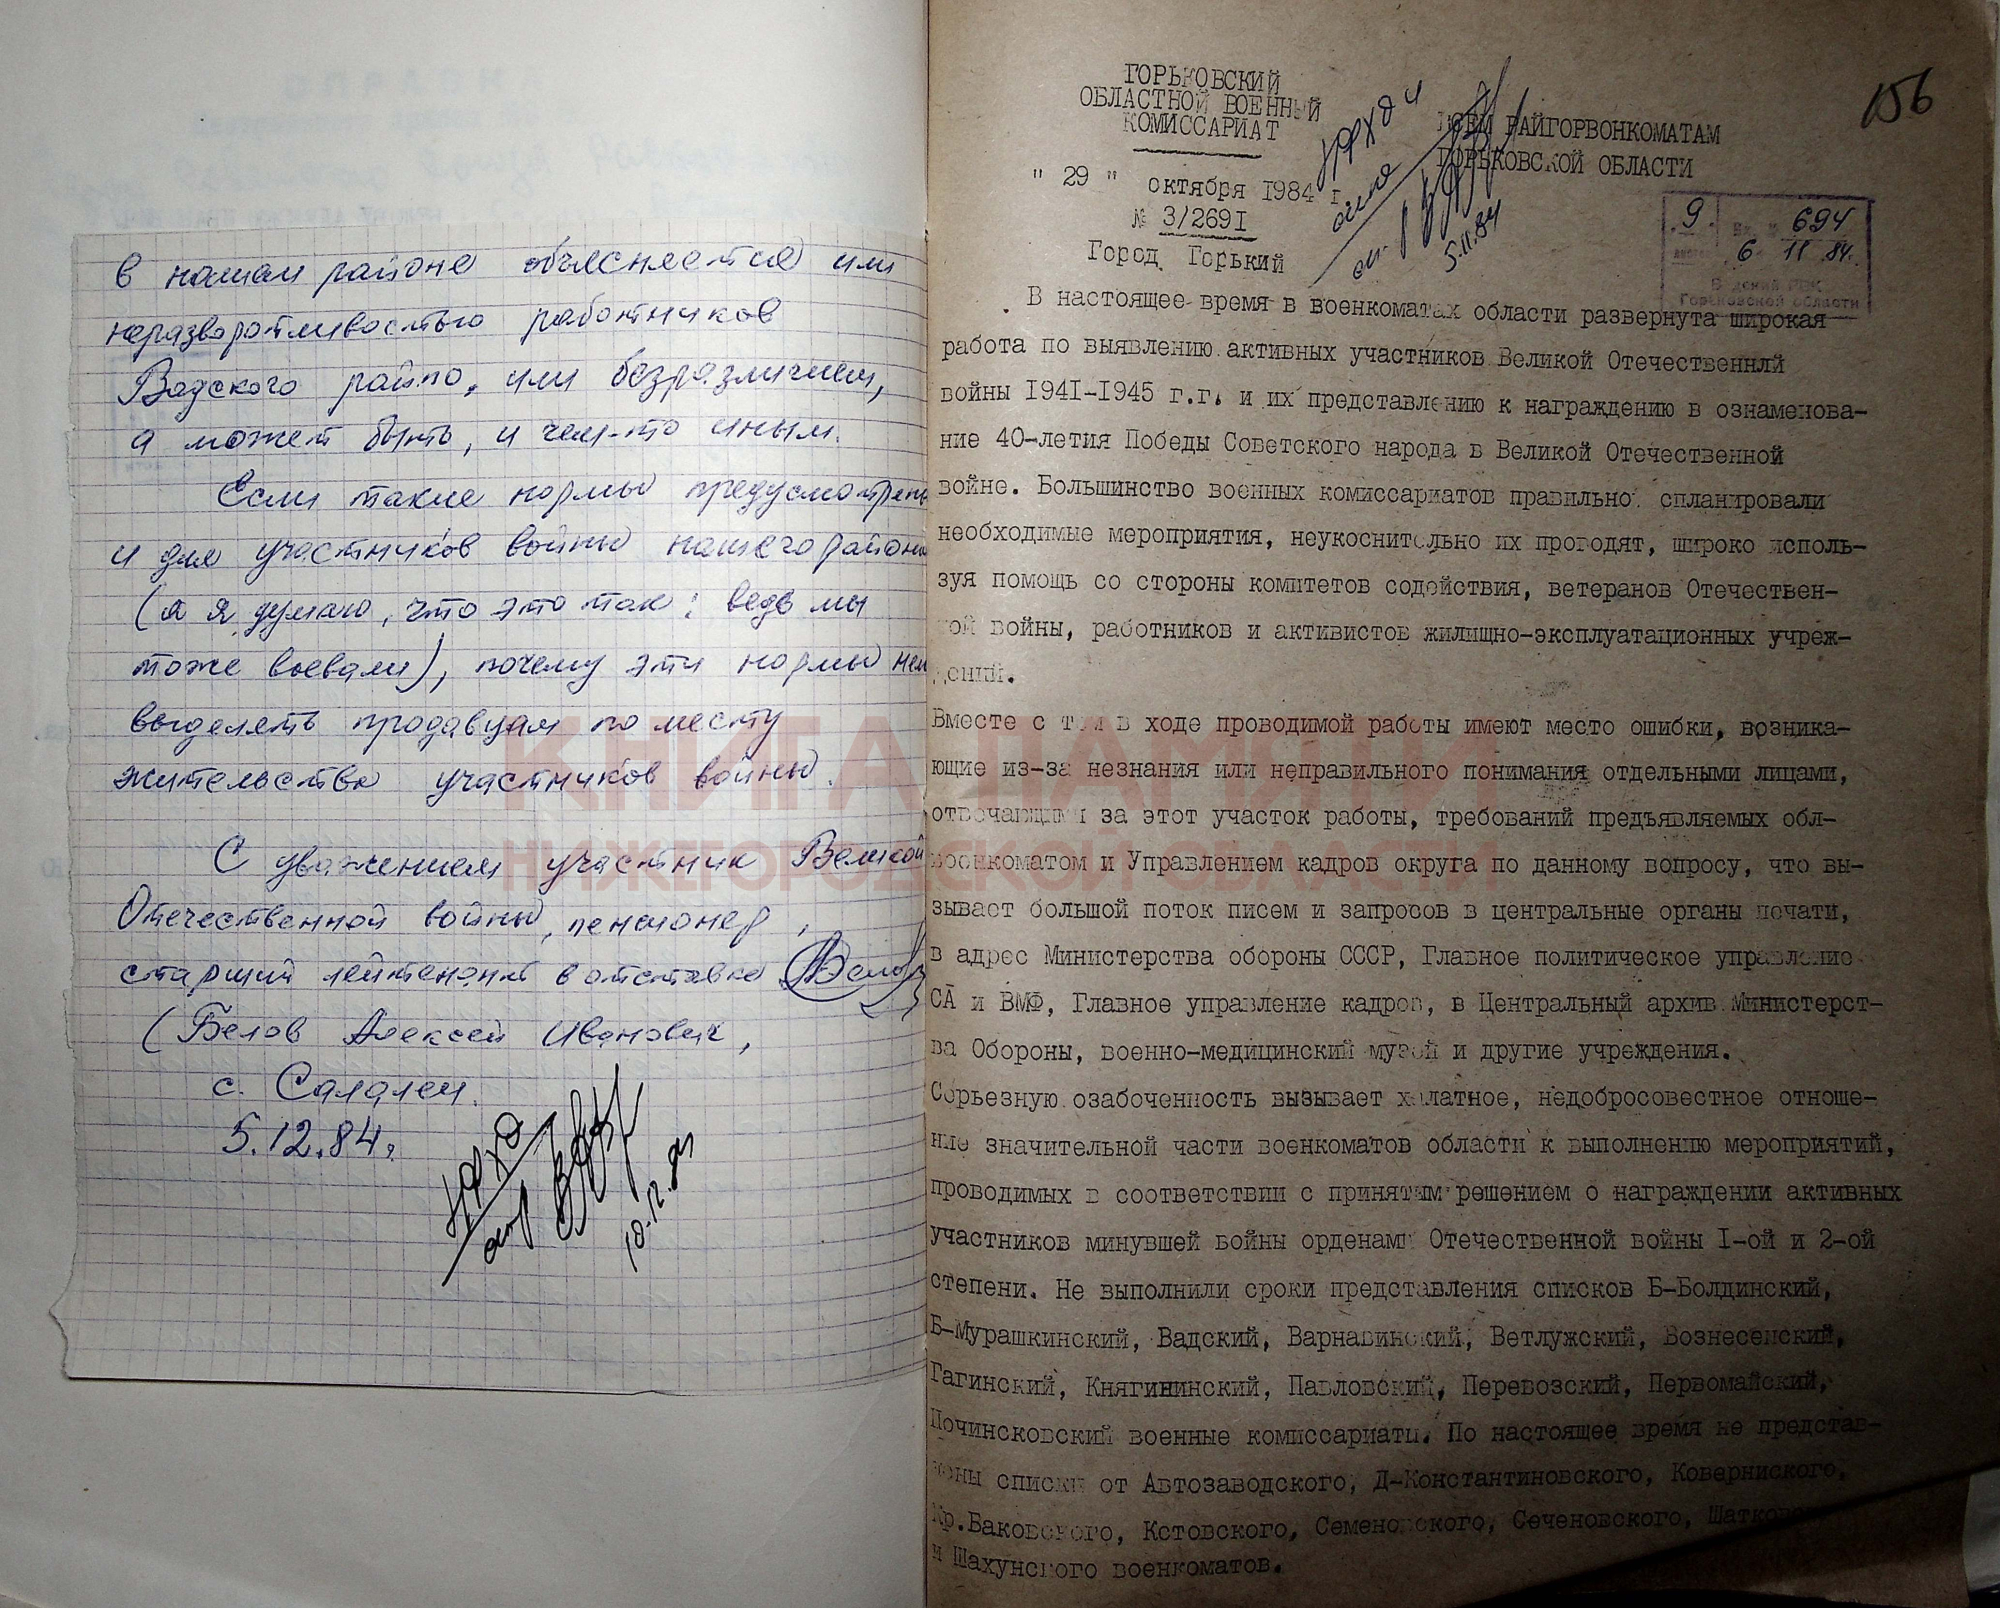 в нашем районе объясняется или
неразворотливостью работников
Вадского райпо, или безразличием,
а может быть, и чем-то иным.
Если такие нормы предусмотрены
и для участников войны нашего района
(а я думаю, что это так: ведь мы
тоже воевали), почему эти нормы не
выделять продавцам по месту
жительства участников войны.
С уважением участник Великой
Отечественной войны, пенсионер,
старший лейтенант в отставке
(Белов Алексей Иванович,
с. Салалеи.
5.12.84г.
10.12.84
156
ГОРЬКОВСКИЙ
ОБЛАСТНОЙ ВОЕННЫЙ
КОМИССАРИАТ
ВСЕМ РАЙГОРВОНКОМАТАМ
ГОРЬКОВСКОЙ ОБЛАСТИ
" 29 " октября 1984 г.
№ 3/2691
Город Горький
5.11.84
9. Вх. № 694
6 11 84г.
Горьковской области
В настоящее время в военкоматах области развернута широкая
работа по выявлению активных участников Великой Отечественнлй
войны 1941-1945 г.г. и их представлению к награждению в ознаменова-
ние 40-летия Победы Советского народа в Великой Отечественной
войне. Большинство военных комиссариатов правильно спланировали
необходимые мероприятия, неукоснительно их проводят, широко исполь-
зуя помощь со стороны комитетов содействия, ветеранов Отечествен-
ной войны, работников и активистов жилищно-эксплуатационных учреж-
дений.
Вместе с тем в ходе проводимой работы имеют место ошибки, возника-
ющие из-за незнания или неправильного понимания отдельными лицами,
отвечающими за этот участок работы, требований предъявляемых обл-
военкоматом и Управлением кадров округа по данному вопросу, что вы-
зывает большой поток писем и запросов в центральные органы печати,
в адрес Министерства обороны СССР, Главное политическое управление
СА и ВМФ, Главное управление кадров, в Центральный архив Министерст-
ва Обороны, военно-медицинский музей и другие учреждения.
Серьезную озабоченность вызывает халатное, недобросовестное отноше-
ние значительной части военкоматов области к выполнению мероприятий,
проводимых в соответствии с принятым решением о награждении активных
участников минувшей войны орденами Отечественной войны 1-ой и 2-ой
степени. Не выполнили сроки представления списков Б-Болдинский,
Б-Мурашкинский, Вадский, Варнавинский, Ветлужский, Вознесенский,
Гагинский, Княгининский, Павловский, Перевозский, Первомайский,
Починсковский военные комиссариаты. По настоящее время не представ-
лены списки от Автозаводского, Д-Константиновского, Коверниского,
Кр.Баковского, Кстовского, Семеновского, Сеченовского, Шатковского
и Шахунского военкоматов.
КНИГА ПАМЯТИ
НИЖЕГОРОДСКОЙ ОБЛАСТИ